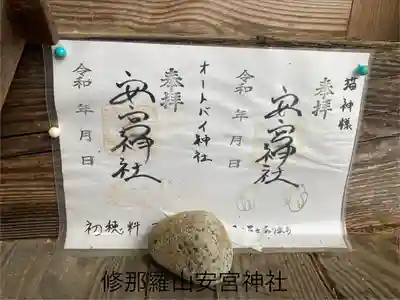 猫神様
奉拝
安宮神社
令和 年 月 日
オートバイ神社
奉拝
安宮神社
令和 年 月 日
初穂料
修那羅山安宮神社